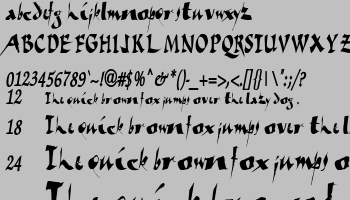 abcdefg hijklmnopqrstuvwxyz
ABCDEFGHIJKLMNOPQRSTUVWXYZ
0123456789`~!@#$%^&*()-_+=>,<.[]{}|\":;/?
12 The quick brown fox jumps over the lazy dog.
18 The quick brown fox jumps over the l
24 The quick brown fox jumps o